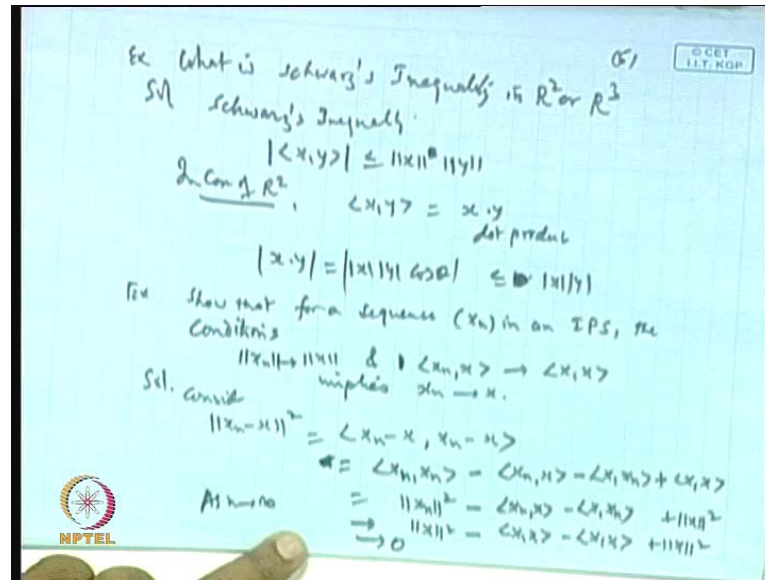 Ex What is schwarz's Inequality in R² or R³
© CET
I.I.T. KGP
Sol Schwarz's Inequality.
|<x,y>| ≤ ||x|| ||y||
In Case of R², <x,y> = x.y
dot product
|x.y| = ||x||y| cosθ| ≤ |x||y|
Ex Show that for a sequence (xn) in an IPS, the
Conditions
||xn|| → ||x|| & <xn,x> → <x,x>
implies xn → x.
Sol. Consider
||xn-x||² = <xn-x, xn-x>
= <xn,xn> - <xn,x> - <x,xn> + <x,x>
= ||xn||² - <xn,x> - <x,xn> + ||x||²
As n→∞ → ||x||² - <x,x> - <x,x> + ||x||²
→ 0
NPTEL